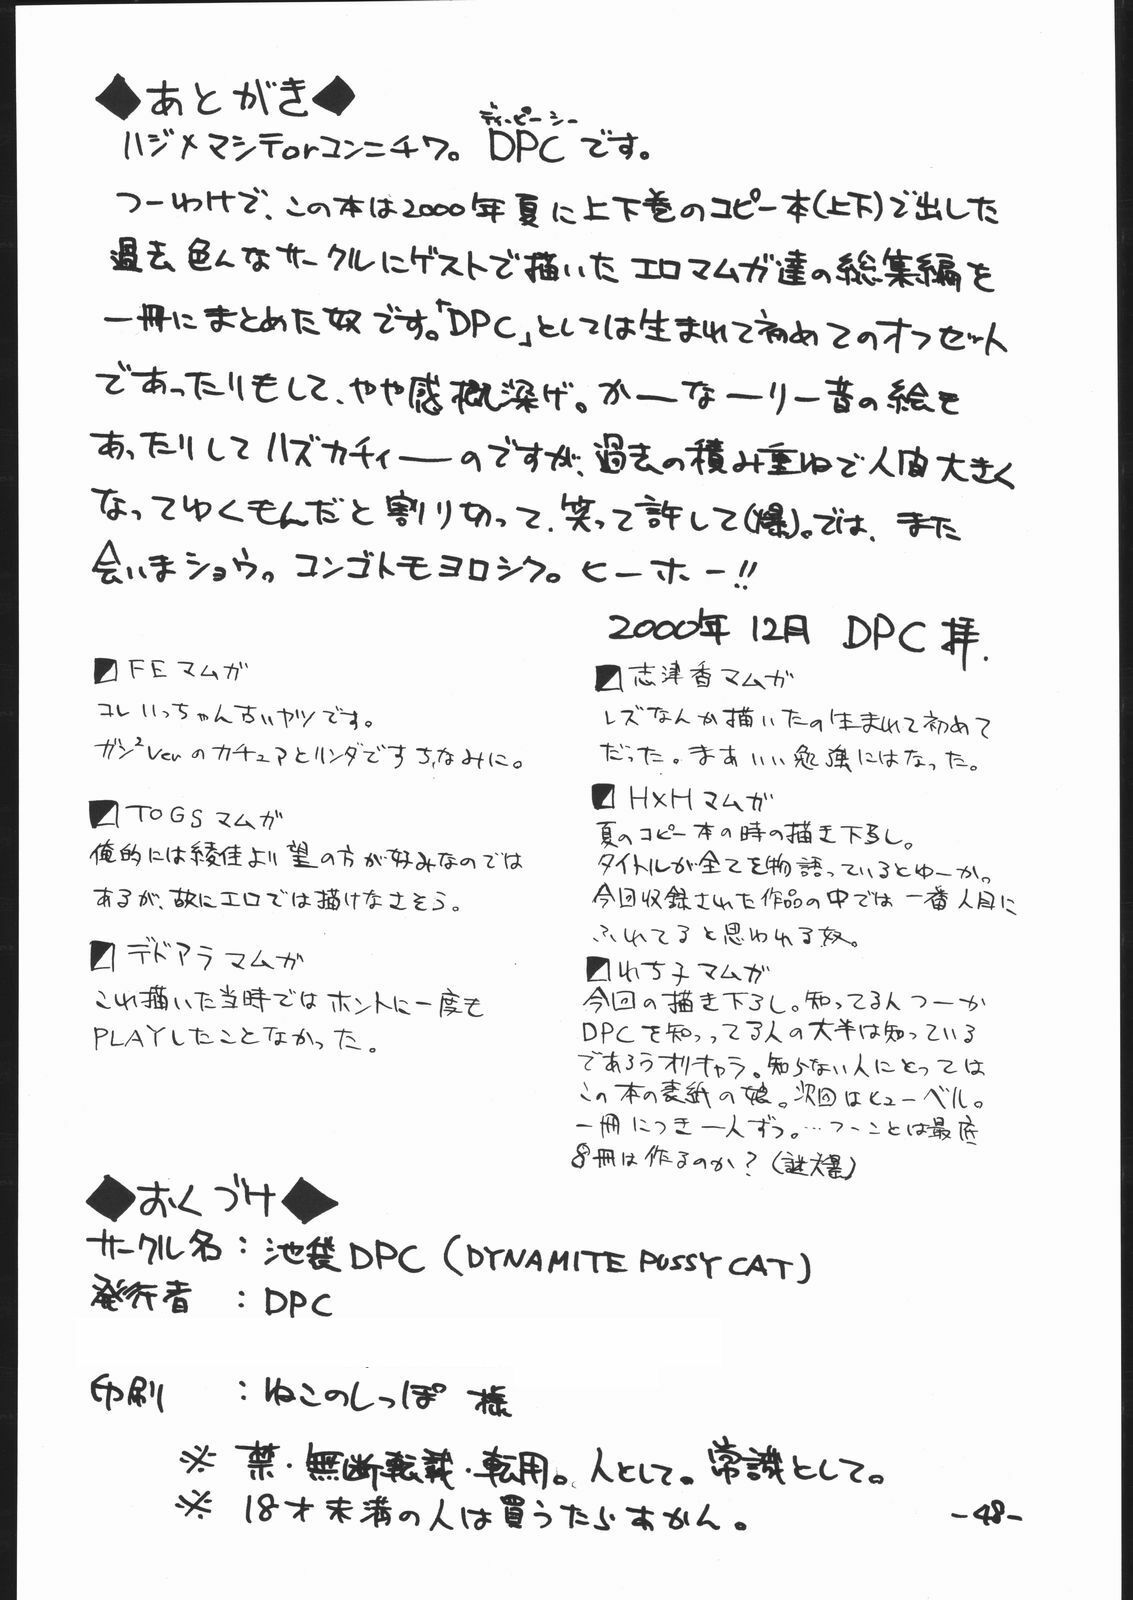 ◆あとがき◆
ハジメマシテorコンニチワ。DPCです。
ディーピーシー
つーわけで、この本は2000年夏に上下巻のコピー本(上下)で出した
過去、色んなサークルにゲストで描いたエロマムガ達の総集編を
一冊にまとめた奴です。「DPC」としては生まれて初めてのオフセット
であったりもして、やや感慨深げ。かーなーりー昔の絵も
あったりしてハズカチィーのですが、過去の積み重ねで人間大きく
なってゆくもんだと割り切って、笑って許して(爆)。では、また
会いまショウっ。コンゴトモヨロシク。ヒーホー!!
2000年12月 DPC 拝.
FEマムガ
コレいっちゃん古いヤツです。
ガシ²Verのカチュアとリンダですちなみに。
TOGSマムガ
俺的には綾佳より望の方が好みなのでは
あるが、故にエロでは描けなさそう。
デドアラマムガ
これ描いた当時ではホントに一度も
PLAYしたことなかった。
志津香マムガ
レズなんか描いたの生まれて初めて
だった。まあいい勉強にはなった。
H×Hマムガ
夏のコピー本の時の描き下ろし。
タイトルが全てを物語っているとゆーか。
今回収録された作品の中では一番人目に
ふれてると思われる奴。
れち子マムガ
今回の描き下ろし。知ってる人つーか
DPCを知ってる人の大半は知っている
であろうオリキャラ。知らない人にとっては
この本の表紙の娘。次回はヒューベル。
一冊につき一人ずつ。…つーことは最底
8冊は作るのか?(謎爆)
◆おくづけ◆
サークル名:池袋DPC(DYNAMITE PUSSY CAT)
発行者:DPC
印刷:ねこのしっぽ 様
※ 禁・無断転載・転用。人として。常識として。
※ 18才未満の人は買うたらあかん。
-48-